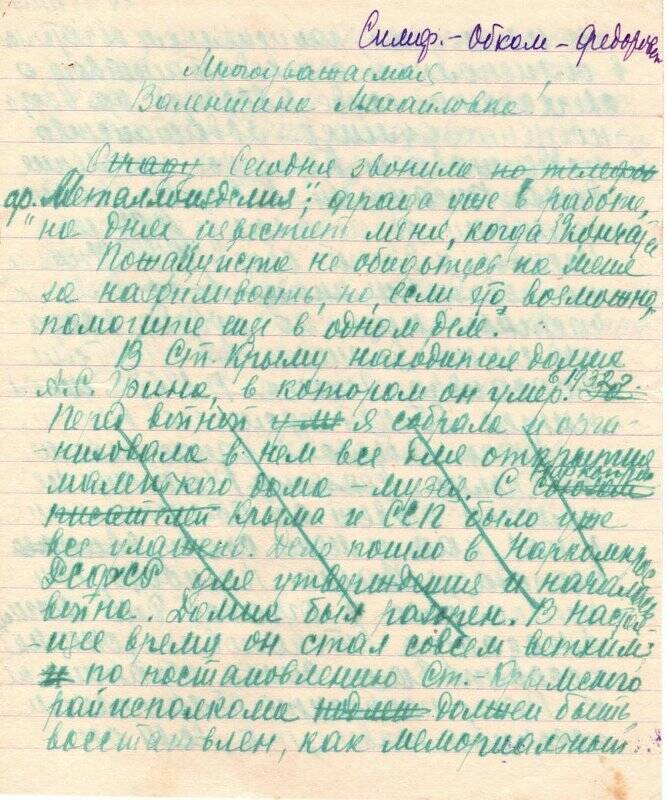 Симф. - Обком - Федоров
Многоуважаемая
Валентина Михайловна!
Ограду Сегодня звонила по телефо
др. "Металлоизделия"; ограда уже в работе,
на днях известят меня, когда кончат
Пожалуйста не обидьтесь на меня
за назойливость, но, если это возможно,
помогите еще в одном деле.
В Ст. Крыму находится домик
А.С. Грина, в котором он умер в 1932 г.
Перед войной я собрала и орга-
-низовала в нем все для открытия
маленького дома-музея. С
писателей Крыма и ССП было уже
все улажено. Дело пошло в Наркомпрос
РСФСР для утверждения и началась
война. Домик был разорен. В насто
-щее время он стал совсем ветхим:
и по постановлению Ст.-Крымского
райисполкома должен быть
восстановлен, как мемориальный